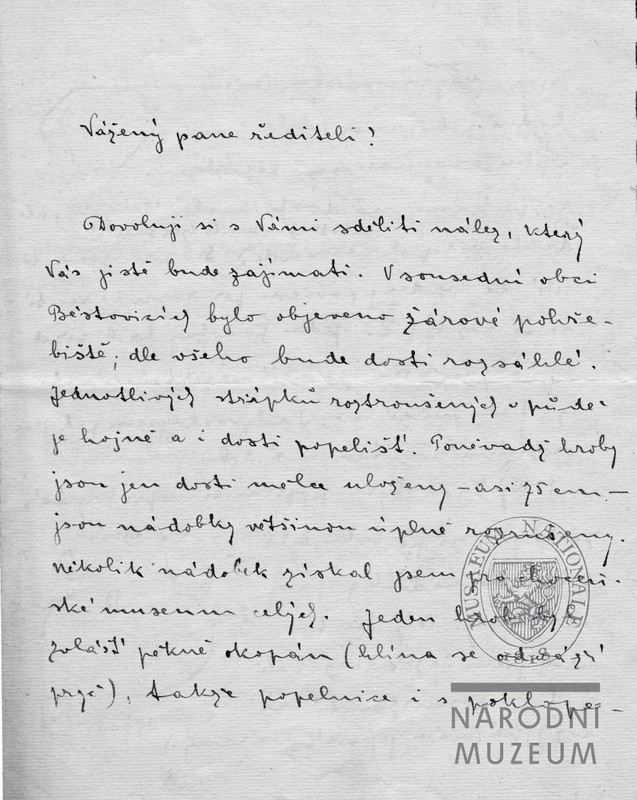 Vážený pane řediteli!
Dovoluji si s Vámi sděliti nález, který
Vás jistě bude zajímati. V sousední obci
Běstovicích bylo objeveno žárové pohře-
biště; dle všeho bude dosti rozsáhlé.
Jednotlivých střípků roztroušených v půdě
je hojně a i dosti popelišť. Poněvadž hroby
jsou jen dosti mělce uloženy – asi 75 cm –
jsou nádobky většinou úplně rozrušeny.
Několik nádobek získal jsem pro choceň-
ské museum celých. Jeden hrob byl
zvlášť pěkně okopán (hlína se odváží
pryč), takže popelnice i s poklope-
MUSEUM NATIONALE
NÁRODNÍ
MUZEUM